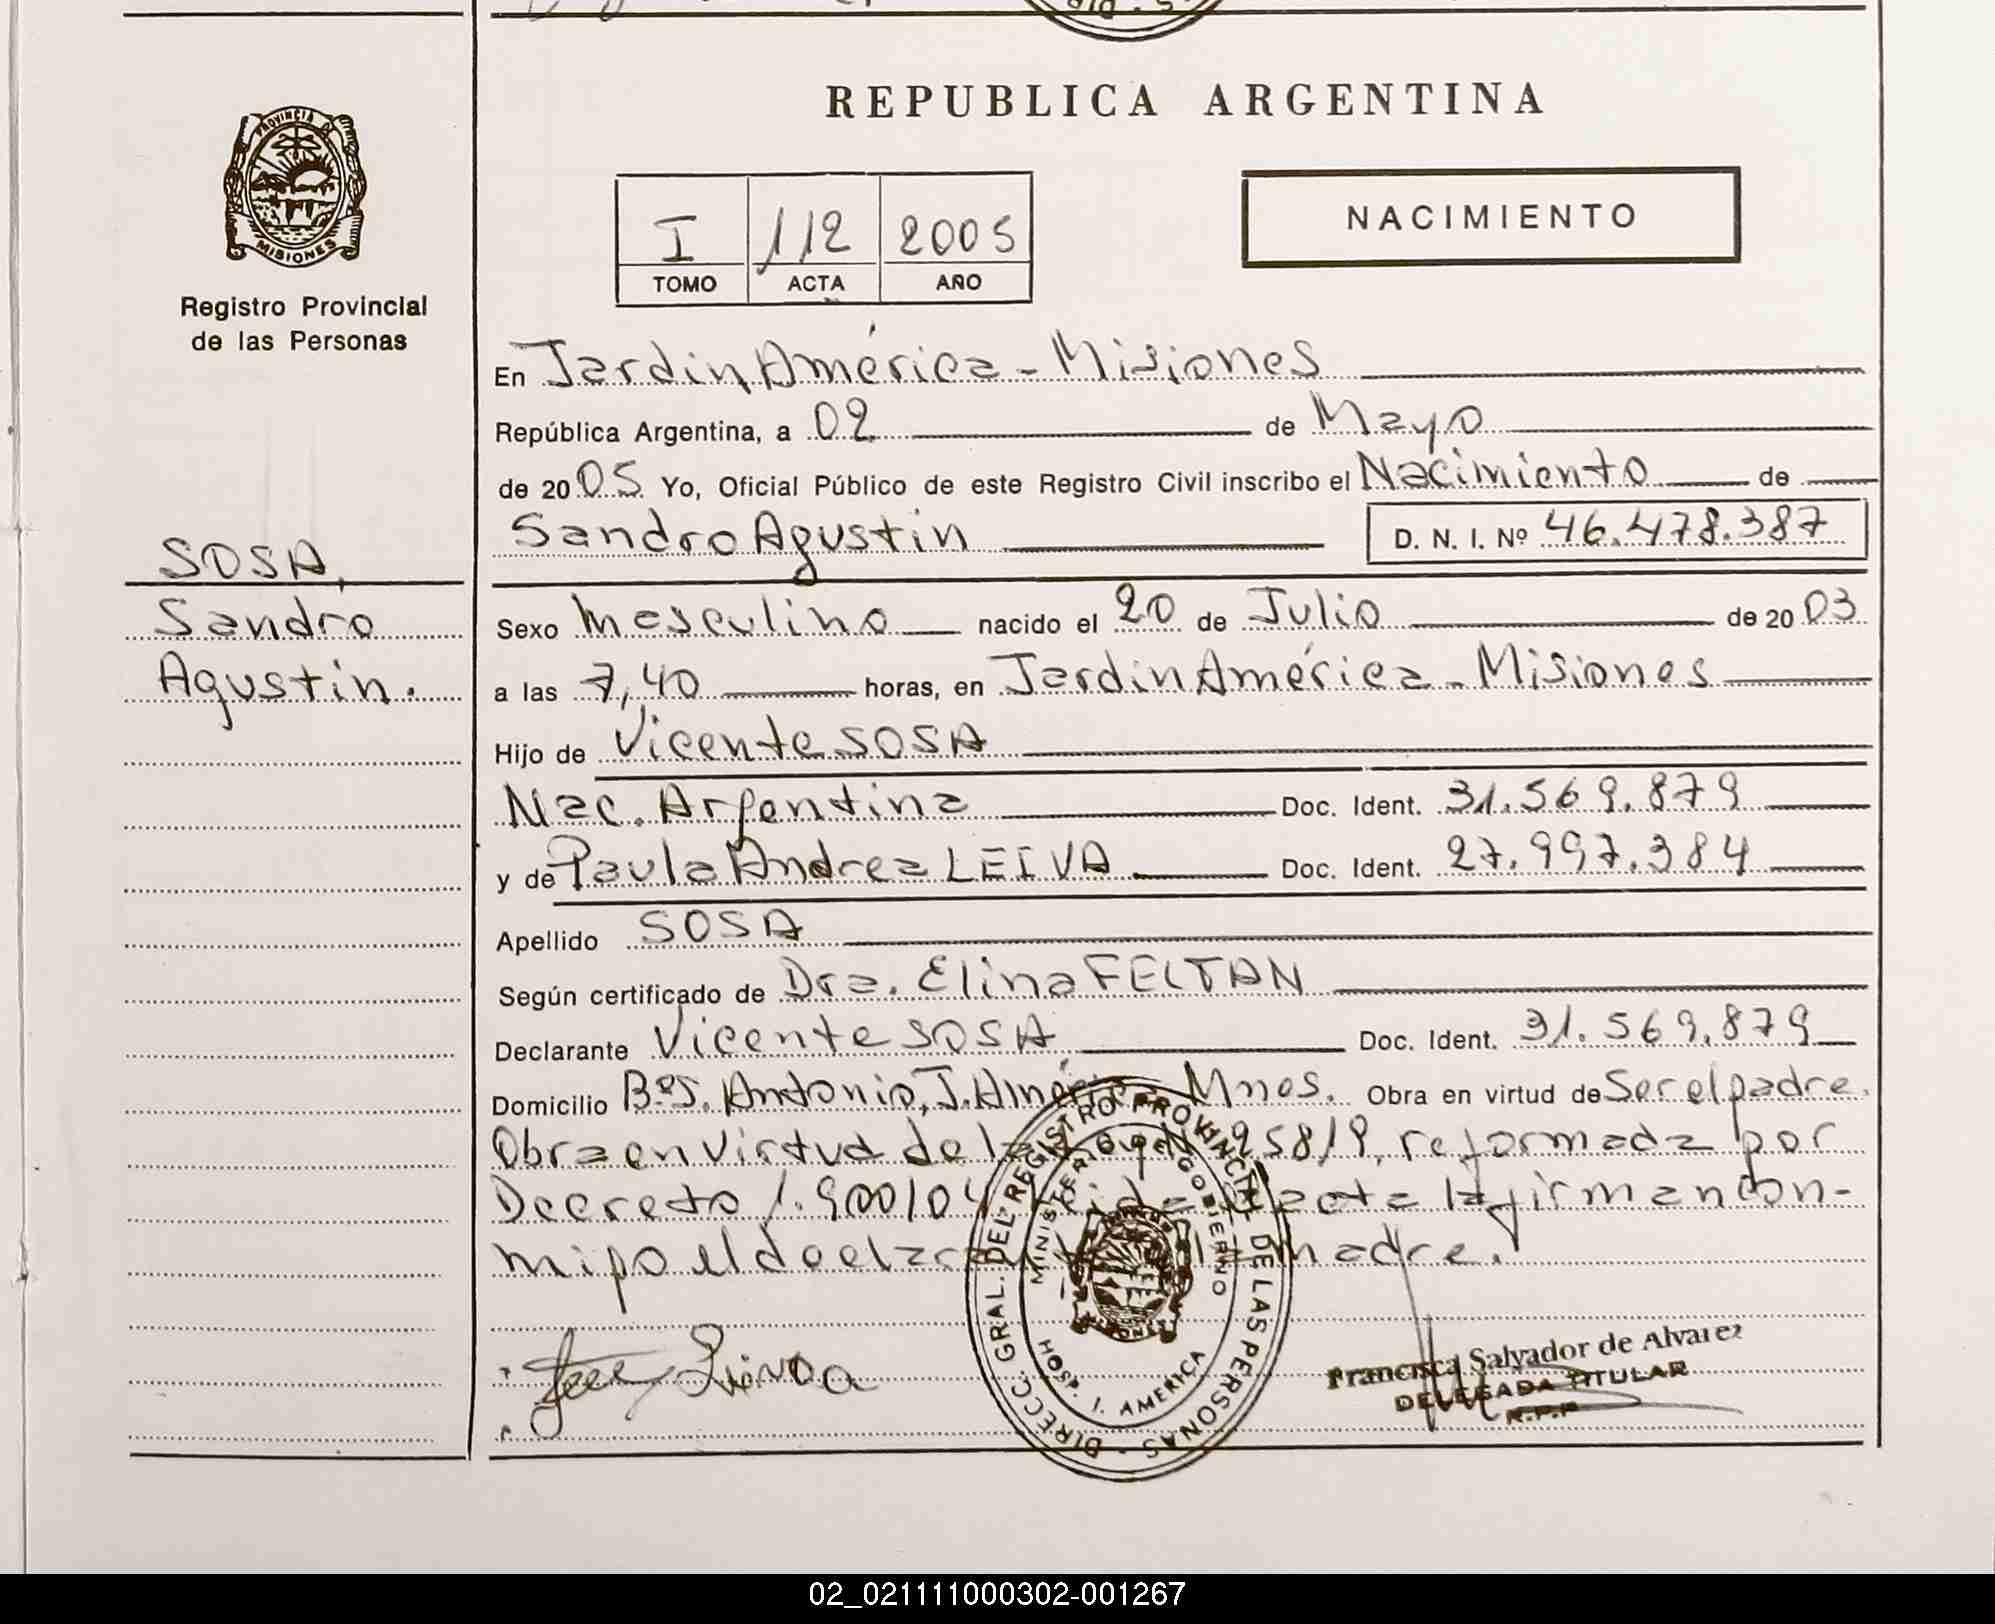 REPUBLICA ARGENTINA
PROVINCIA DE
MISIONES
Registro Provincial
de las Personas
I 112 2005
TOMO ACTA AÑO
NACIMIENTO
En Jardin América - Misiones
República Argentina, a 02 de Mayo
de 2005 Yo, Oficial Público de este Registro Civil inscribo el Nacimiento de
Sandro Agustin D. N. I. Nº 46.478.387
SOSA,
Sandro
Agustin.
Sexo Masculino nacido el 20 de Julio de 2003
a las 7,40 horas, en Jardin América - Misiones
Hijo de Vicente SOSA
Nac. Argentina Doc. Ident. 31.569.879
y de Paula Andrea LEIVA Doc. Ident. 27.997.384
Apellido SOSA
Según certificado de Dra. Elina FELTAN
Declarante Vicente SOSA Doc. Ident. 31.569.879
Domicilio Bº S. Antonio, J. América Mnes. Obra en virtud de Ser el padre.
Obra en virtud de la 25819, reformada por
Decreto 1.900/04 Leida acta la firman con-
migo el declarante la madre.
DIRECC. GRAL. DEL REGISTRO PROVINCIAL DE LAS PERSONAS
MINISTERIO DE GOBIERNO
HOSP. J. AMERICA
Leiva
Francisca Salvador de Alvarez
DELEGADA TITULAR
R.P.P
02_021111000302-001267